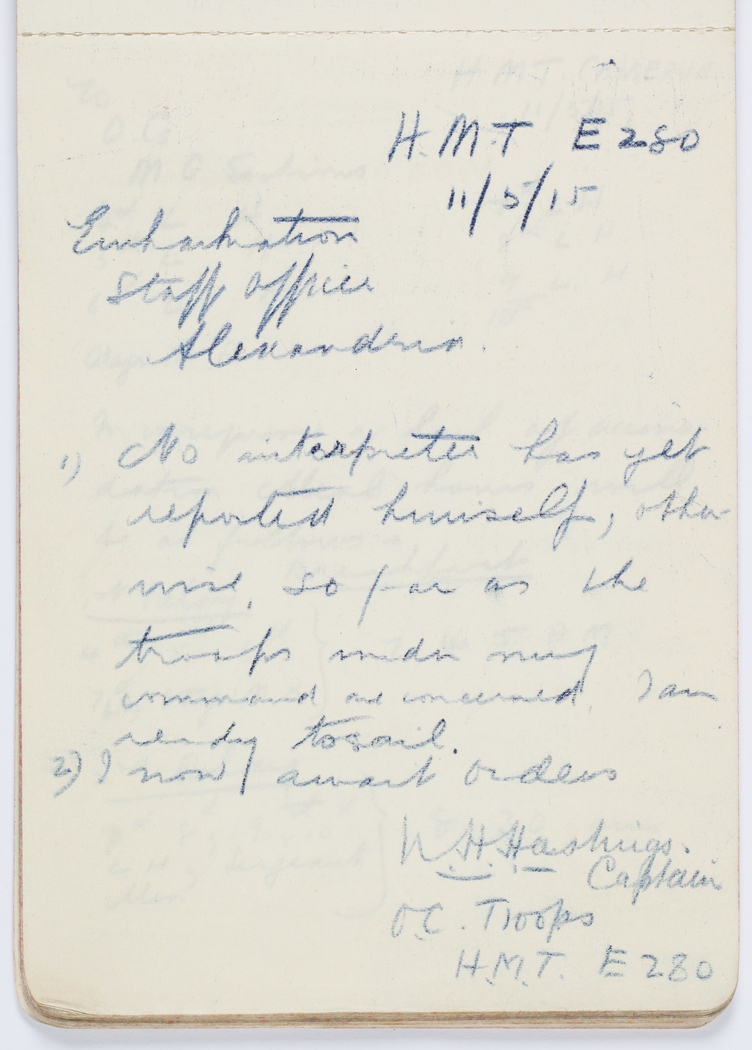 H.M.T E280
11/5/15
Embarkation
Staff Officer
Alexandria.
1) No interpreter has yet
reported himself; other
wise, so far as the
troops under my
command are concerned, I am
ready to sail.
2) I now await orders
W.H. Hastings.
Captain
O.C. Troops
H.M.T. E280